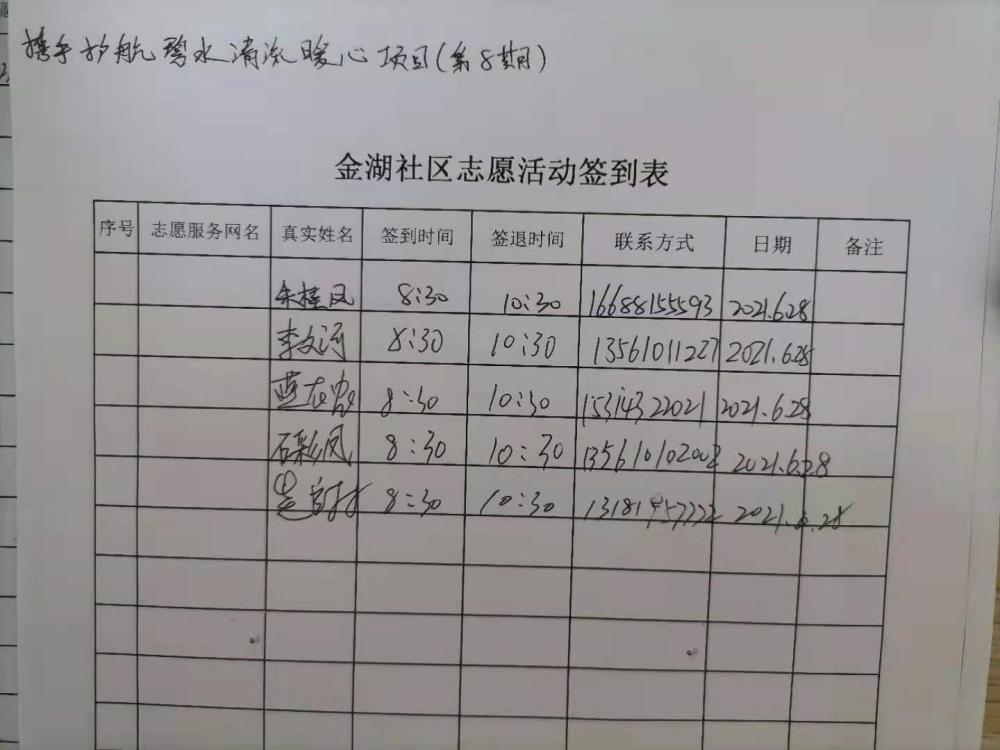 携手护航碧水清流暖心项目(第8期)
金湖社区志愿活动签到表
序号 志愿服务网名 真实姓名 签到时间 签退时间 联系方式 日期 备注
余桂凤 8:30 10:30 16688155593 2021.6.28
李文河 8:30 10:30 13561011227 2021.6.28
8:30 10:30 15314322021 2021.6.28
石彩凤 8:30 10:30 2021.6.28
8:30 10:30 2021.6.28